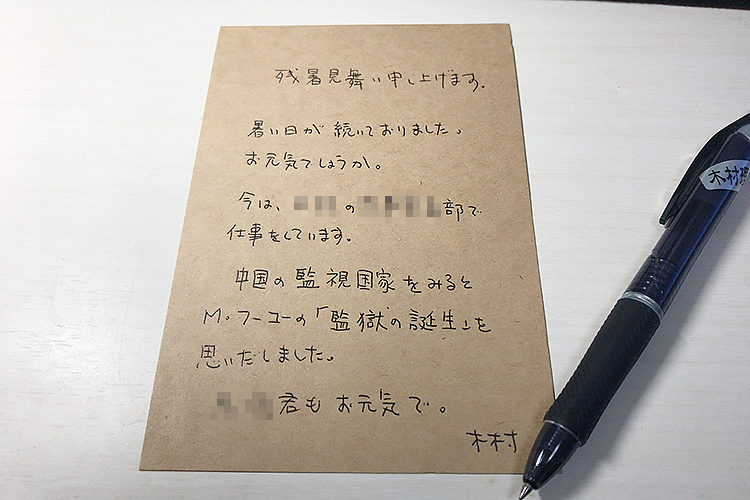 残暑見舞い申し上げます。
暑い日が続いておりました。
お元気でしょうか。
今は、の部で
仕事をしています。
中国の監視国家をみると
M。フーコーの「監獄の誕生」を
思いだしました。
君もお元気で。
木村
木村